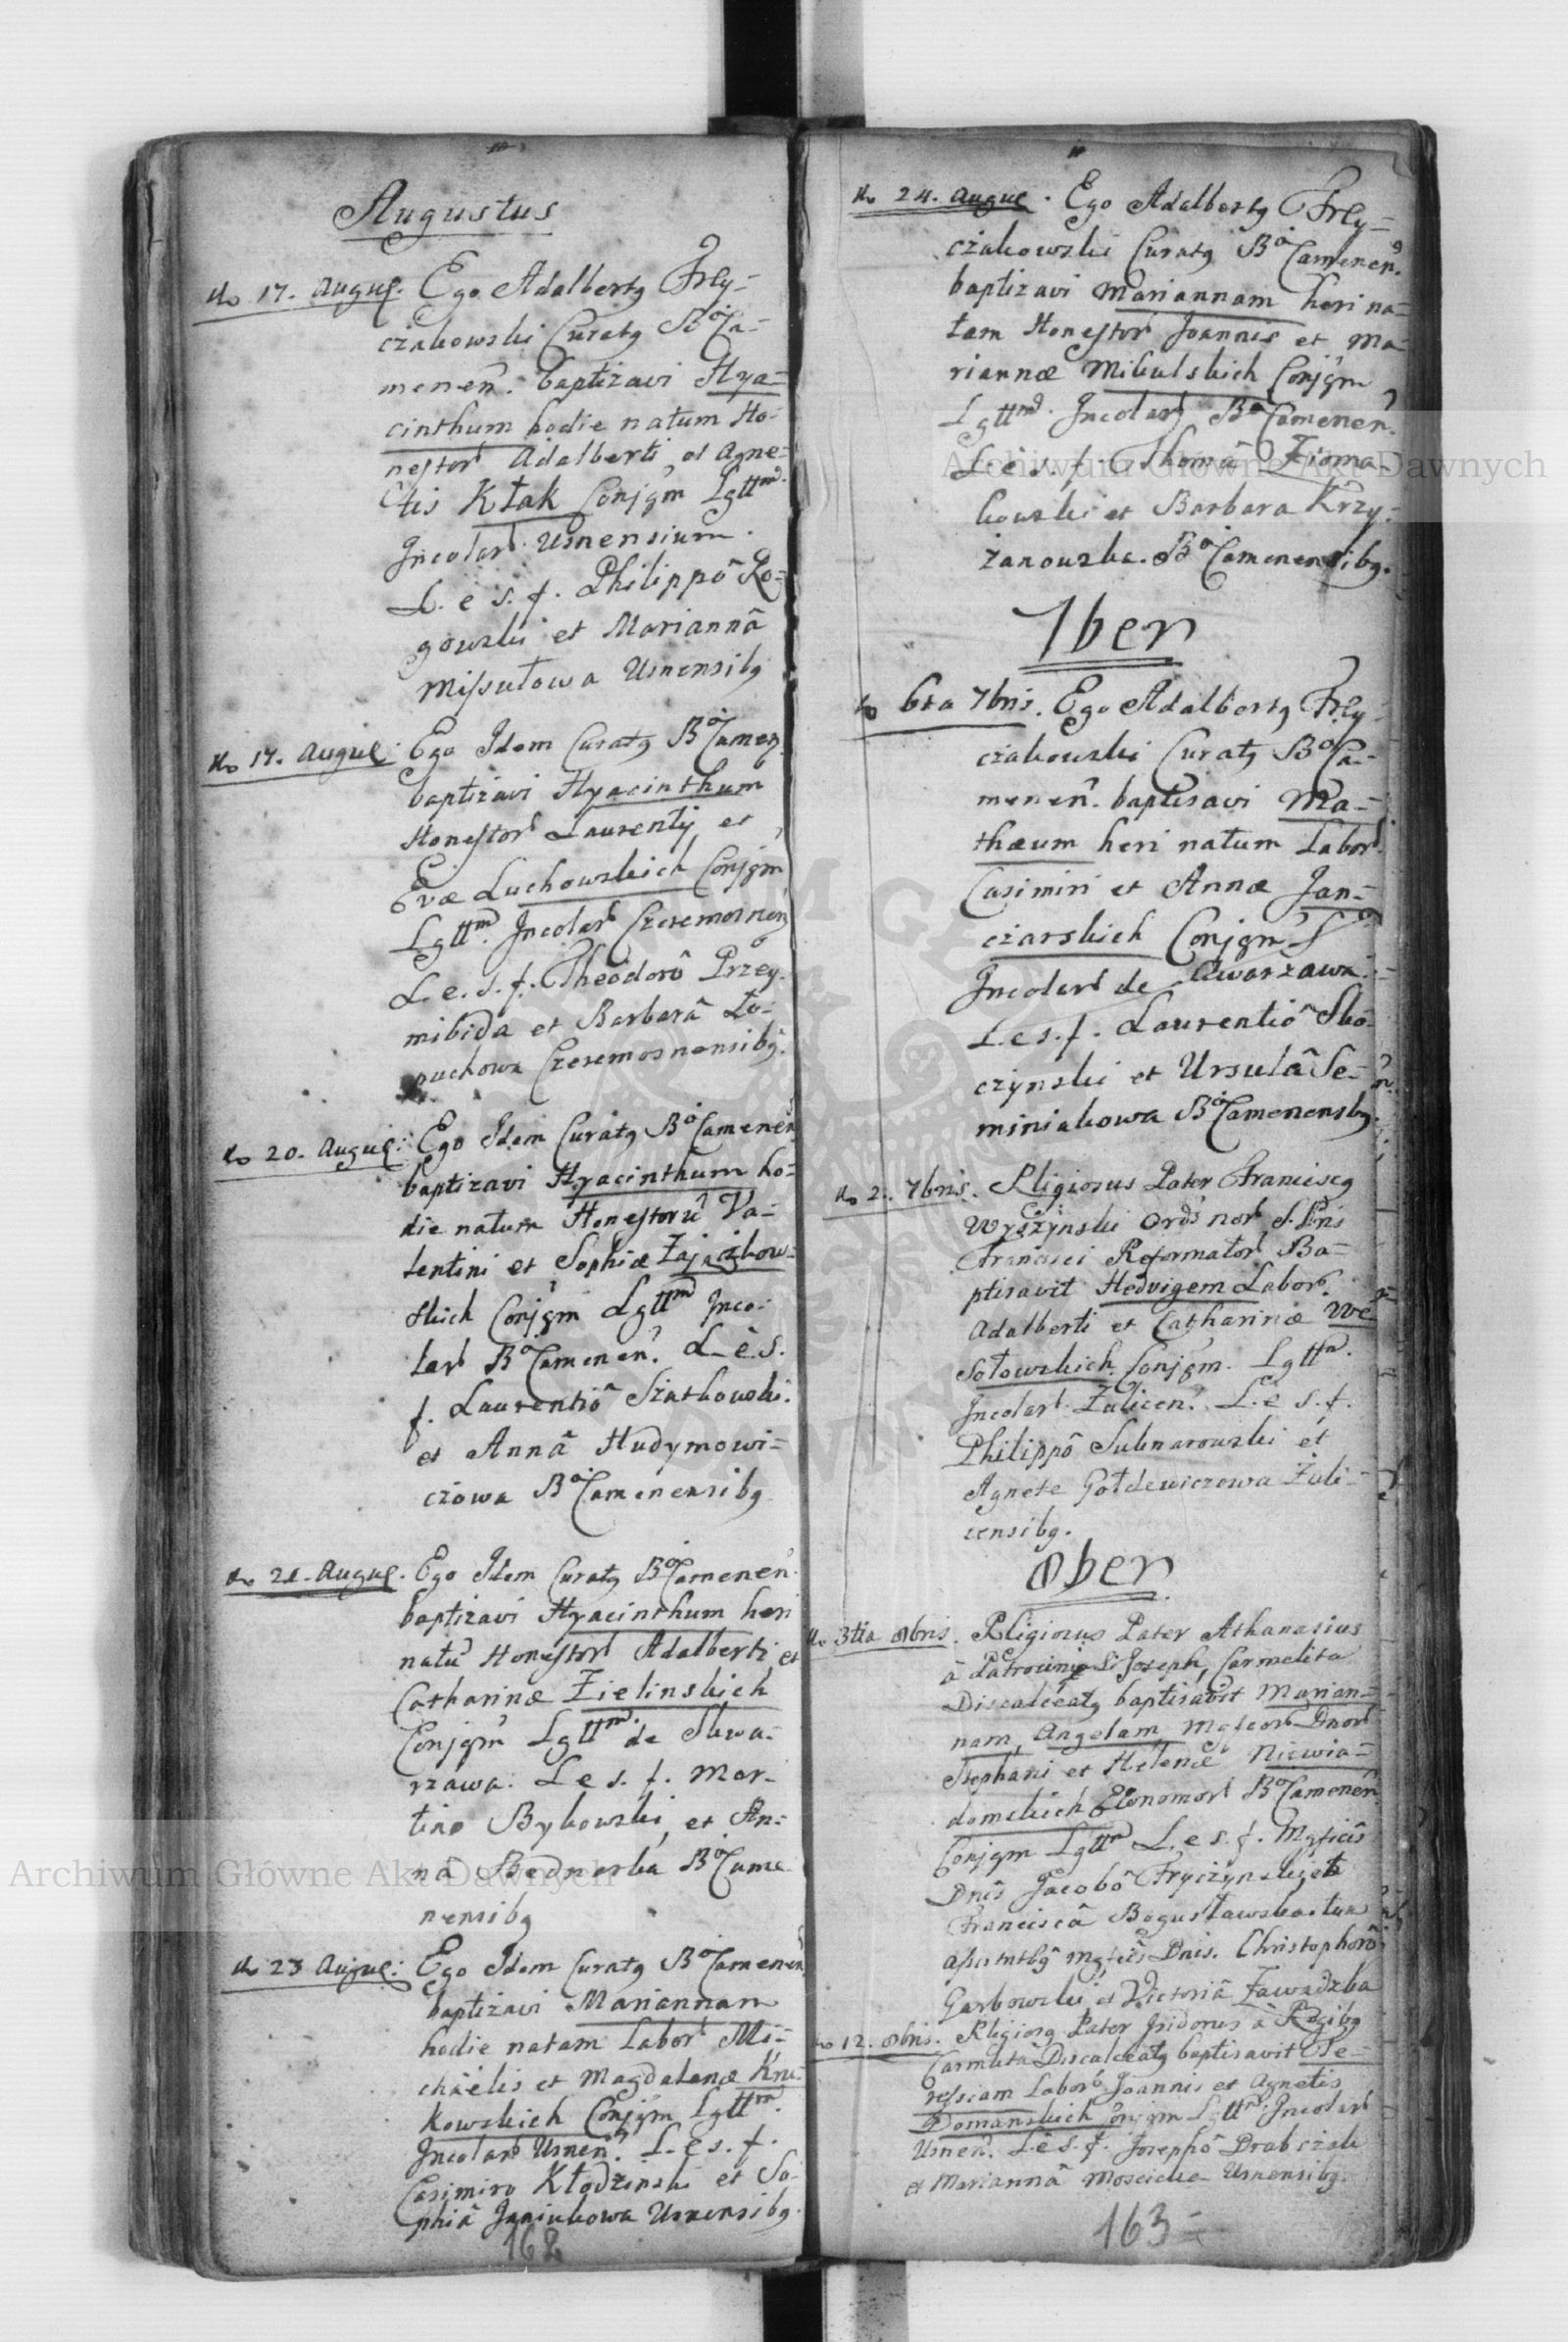 Augustus
17. Augus. Ego Adalbertq Fry-
czakowski Curatq Bo Ca-
menen. baptizavi Hya-
cinthum hodie natum Ho-
nestor Adalberti et Agne-
tis Kłak Conjgm Lgttm.
Incolar Usnensium.
L. e s. f. Philippô Ro-
gowski et Mariannâ
Missutowa Usnensibq
17. Augus: Ego Idem Curatq Bo Camen
baptizavi Hyacinthum
Honestor Laurentij et
Evæ Luchowskich Conjgm
Lgttm. Incolar Czeremosnen
L. e. s. f. Theodorô Przy
mibida et Barbarâ Lo-
puchowa Czeremosnensibq.
20. Augus: Ego Idem Curatq Bo Camenen
baptizavi Hyacinthum ho-
die natum Honestorũ Va-
lentini et Sophiæ Zajączkow-
skich Conjgm Lgttm Inco-
lar Bo Camenen. L. e. s.
f. Laurentiô Szatkowski.
et Annâ Hudymowi-
czowa Bo Camenensibq
21. Augus. Ego Idem Curatq Bo Camenen
baptizavi Hyacinthum heri
natũ Honestor Adalberti et
Catharinæ Zielinskich
Conjgm Lgttm. de Skwa-
rzawa. L e s. f. Mar-
tino Bykowski, et An-
nâ Bednarka Bo Came
nensibq
23 Augus: Ego Idem Curatq Bo Camenen
baptizavi Mariannam
hodie natam Labor Mi-
chaelis et Magdalenæ Kru-
kowskich Conjgm Lgttm.
Incolar Usnen. L. e s. f.
Casimiro Kłodzinski et So-
phiâ Janiukowa Usnensibq.
162
24. Augus. Ego Adalbertq Fry-
czakowski Curatq Bo Camenen.
baptizavi Mariannam heri na-
tam Honestor Joannis et Ma-
riannæ Mikulskich Conjgm
Lgttm. Incolar Bo Camenen.
L. e s. f. Thomâ Zioma-
kowski et Barbara Krzy-
żanowska. Bo Camenensibq.
7ber
6ta 7bris. Ego Adalbertq Fry
czakowski Curatq Bo Ca-
menen. baptisavi Ma-
thæum heri natum Labor
Casimiri et Annæ Jan-
czarskich Conjgm L
Incolar de Skwarzawa.
L. e s. f. Laurentiô Sko-
czynski et Ursulâ Se-
miniakowa Bo Camenensibq.
2. 7bris. Rligiosus Pater Franciscq
Wyszynski Ords nor S. Pris
Francisci Reformator Ba-
ptisavit Hedvigem Labor.
Adalberti et Catharinæ We
sołowskich Conjgm. Lgttm.
Incolar Zulicen. L. e s. f.
Philippô Suknarowski et
Agnete Gołdewiczowa Zuli-
censibq.
8ber
3tia 8bris. Rligiosus Pater Athanasius
à Patrocinio S. Joseph, Carmelita
Discalceatq baptisavit Marian-
nam, Angelam Mgficor Dnor
Stephani et Helenæ Niewia-
domskich Œconomor Bo Camenen
Conjgm Lgttm L. e s. f. Mgficis
Dnis Jacobô Fryczynski et
Franciscâ Bogusławska tum
assistntbq Mgficis Dnis. Christophorô
Garbowski et Victoriâ Zawadzka
12. 8bris. Rligiosq Pater Isidorus à Regibq
Carmelita Discalceatq baptisavit The-
ressiam Labor Joannis et Agnetis
Domanskich Conjgm Lgttm Incolar
Usnen. L. e s. f. Josephô Drabczak
et Mariannâ Moscicka Usnensibq.
163
Archiwum Główne Akt Dawnych
Archiwum Główne Akt Dawnych